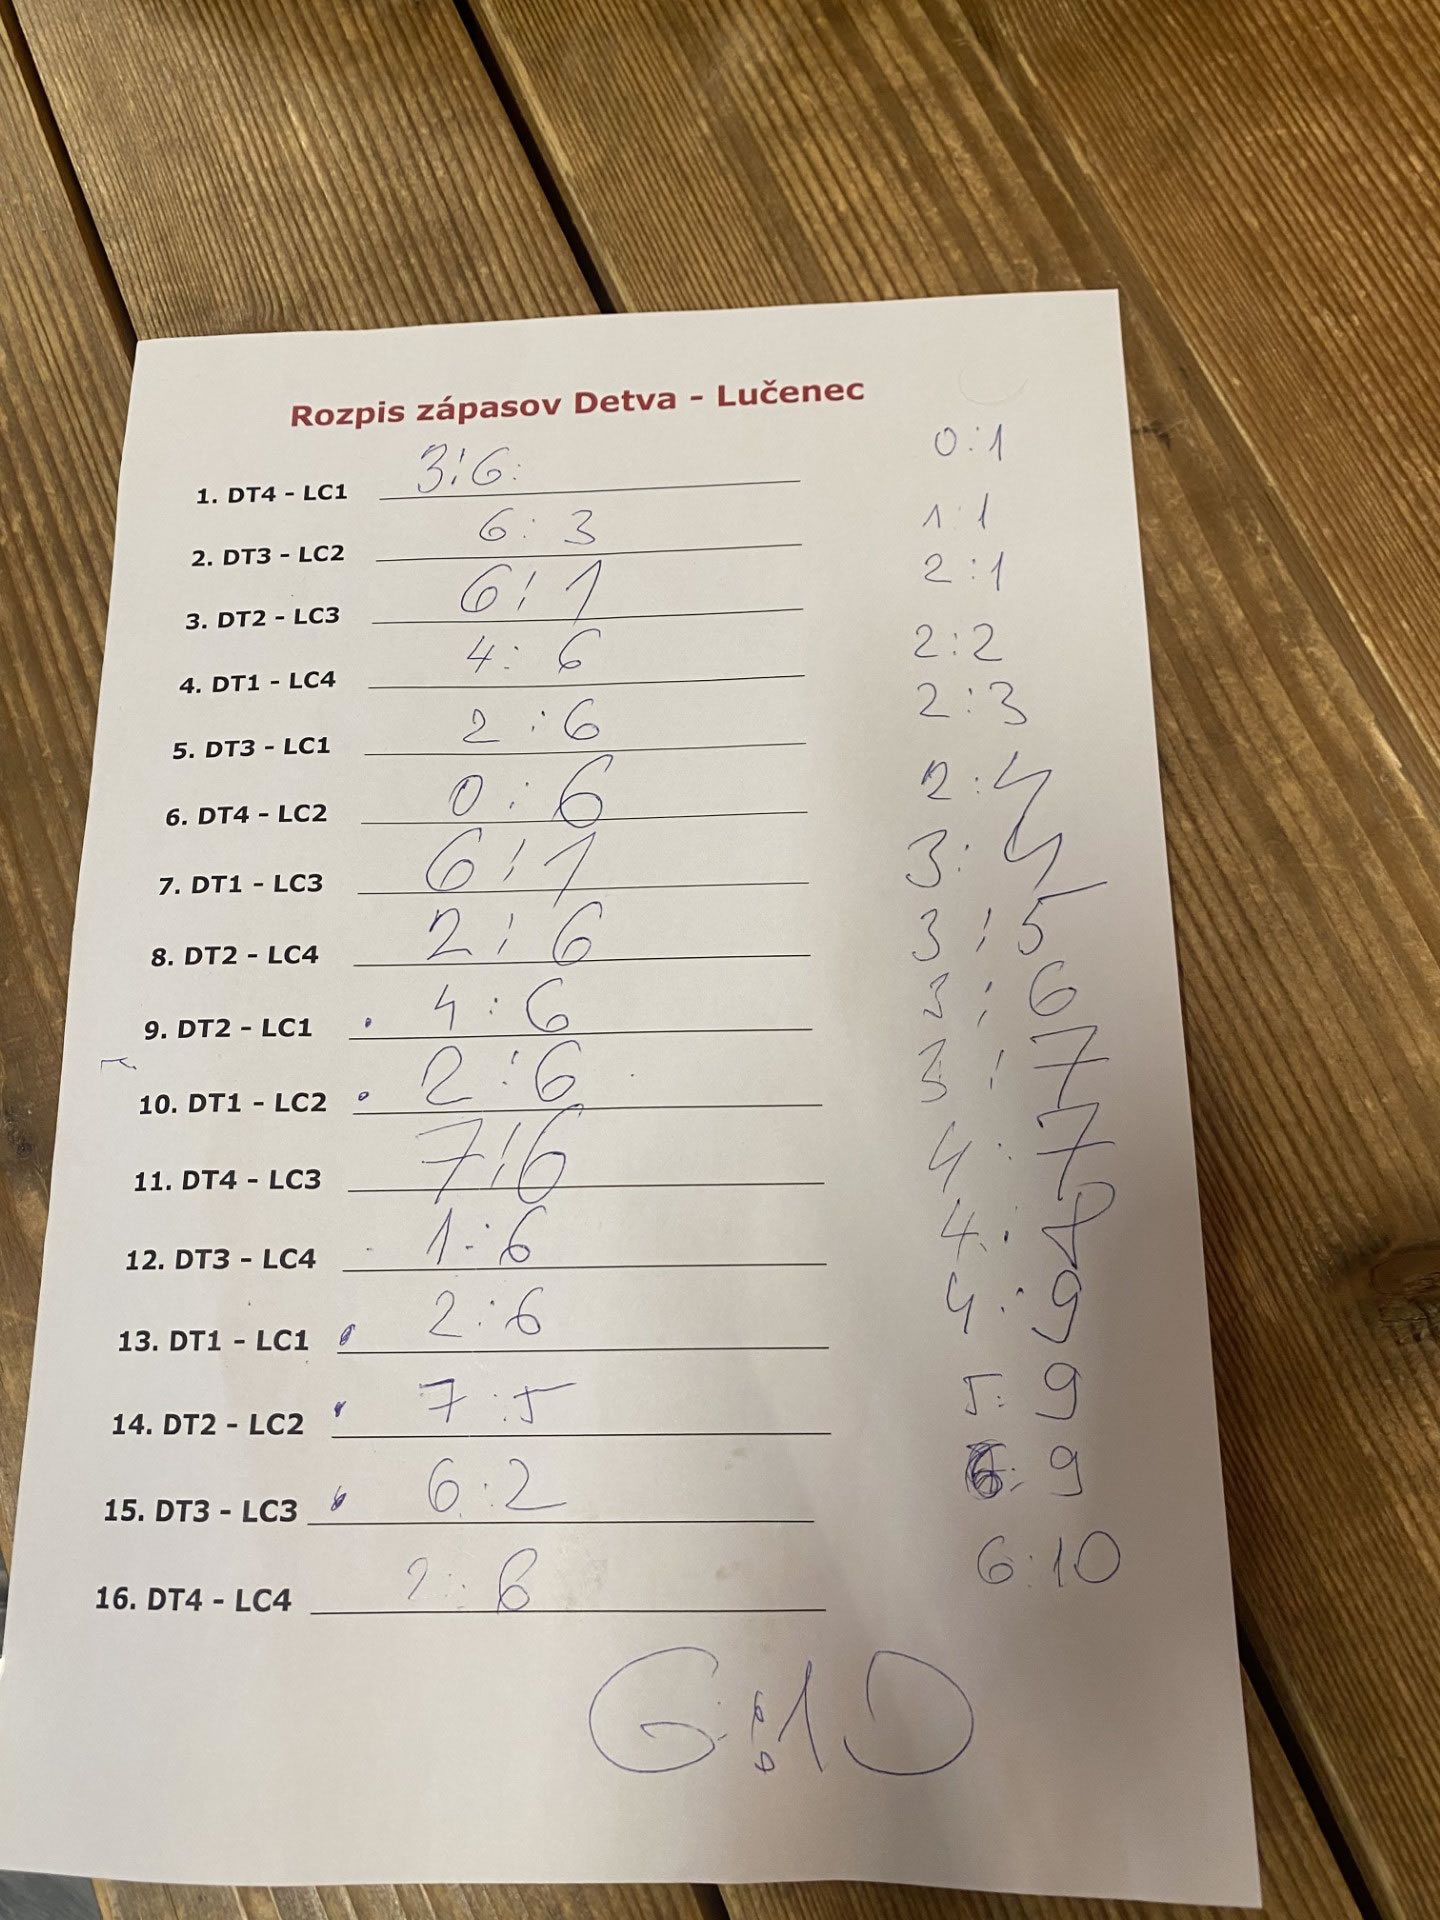 Rozpis zápasov Detva - Lučenec
1. DT4 - LC1 3:6 0:1
2. DT3 - LC2 6:3 1:1
3. DT2 - LC3 6:1 2:1
4. DT1 - LC4 4:6 2:2
5. DT3 - LC1 2:6 2:3
6. DT4 - LC2 0:6 2:4
7. DT1 - LC3 6:1 3:4
8. DT2 - LC4 2:6 3:5
9. DT2 - LC1 4:6 3:6
10. DT1 - LC2 2:6 3:7
11. DT4 - LC3 7:6 4:7
12. DT3 - LC4 1:6 4:8
13. DT1 - LC1 2:6 4:9
14. DT2 - LC2 7:5 5:9
15. DT3 - LC3 6:2 6:9
16. DT4 - LC4 2:6 6:10
6:10